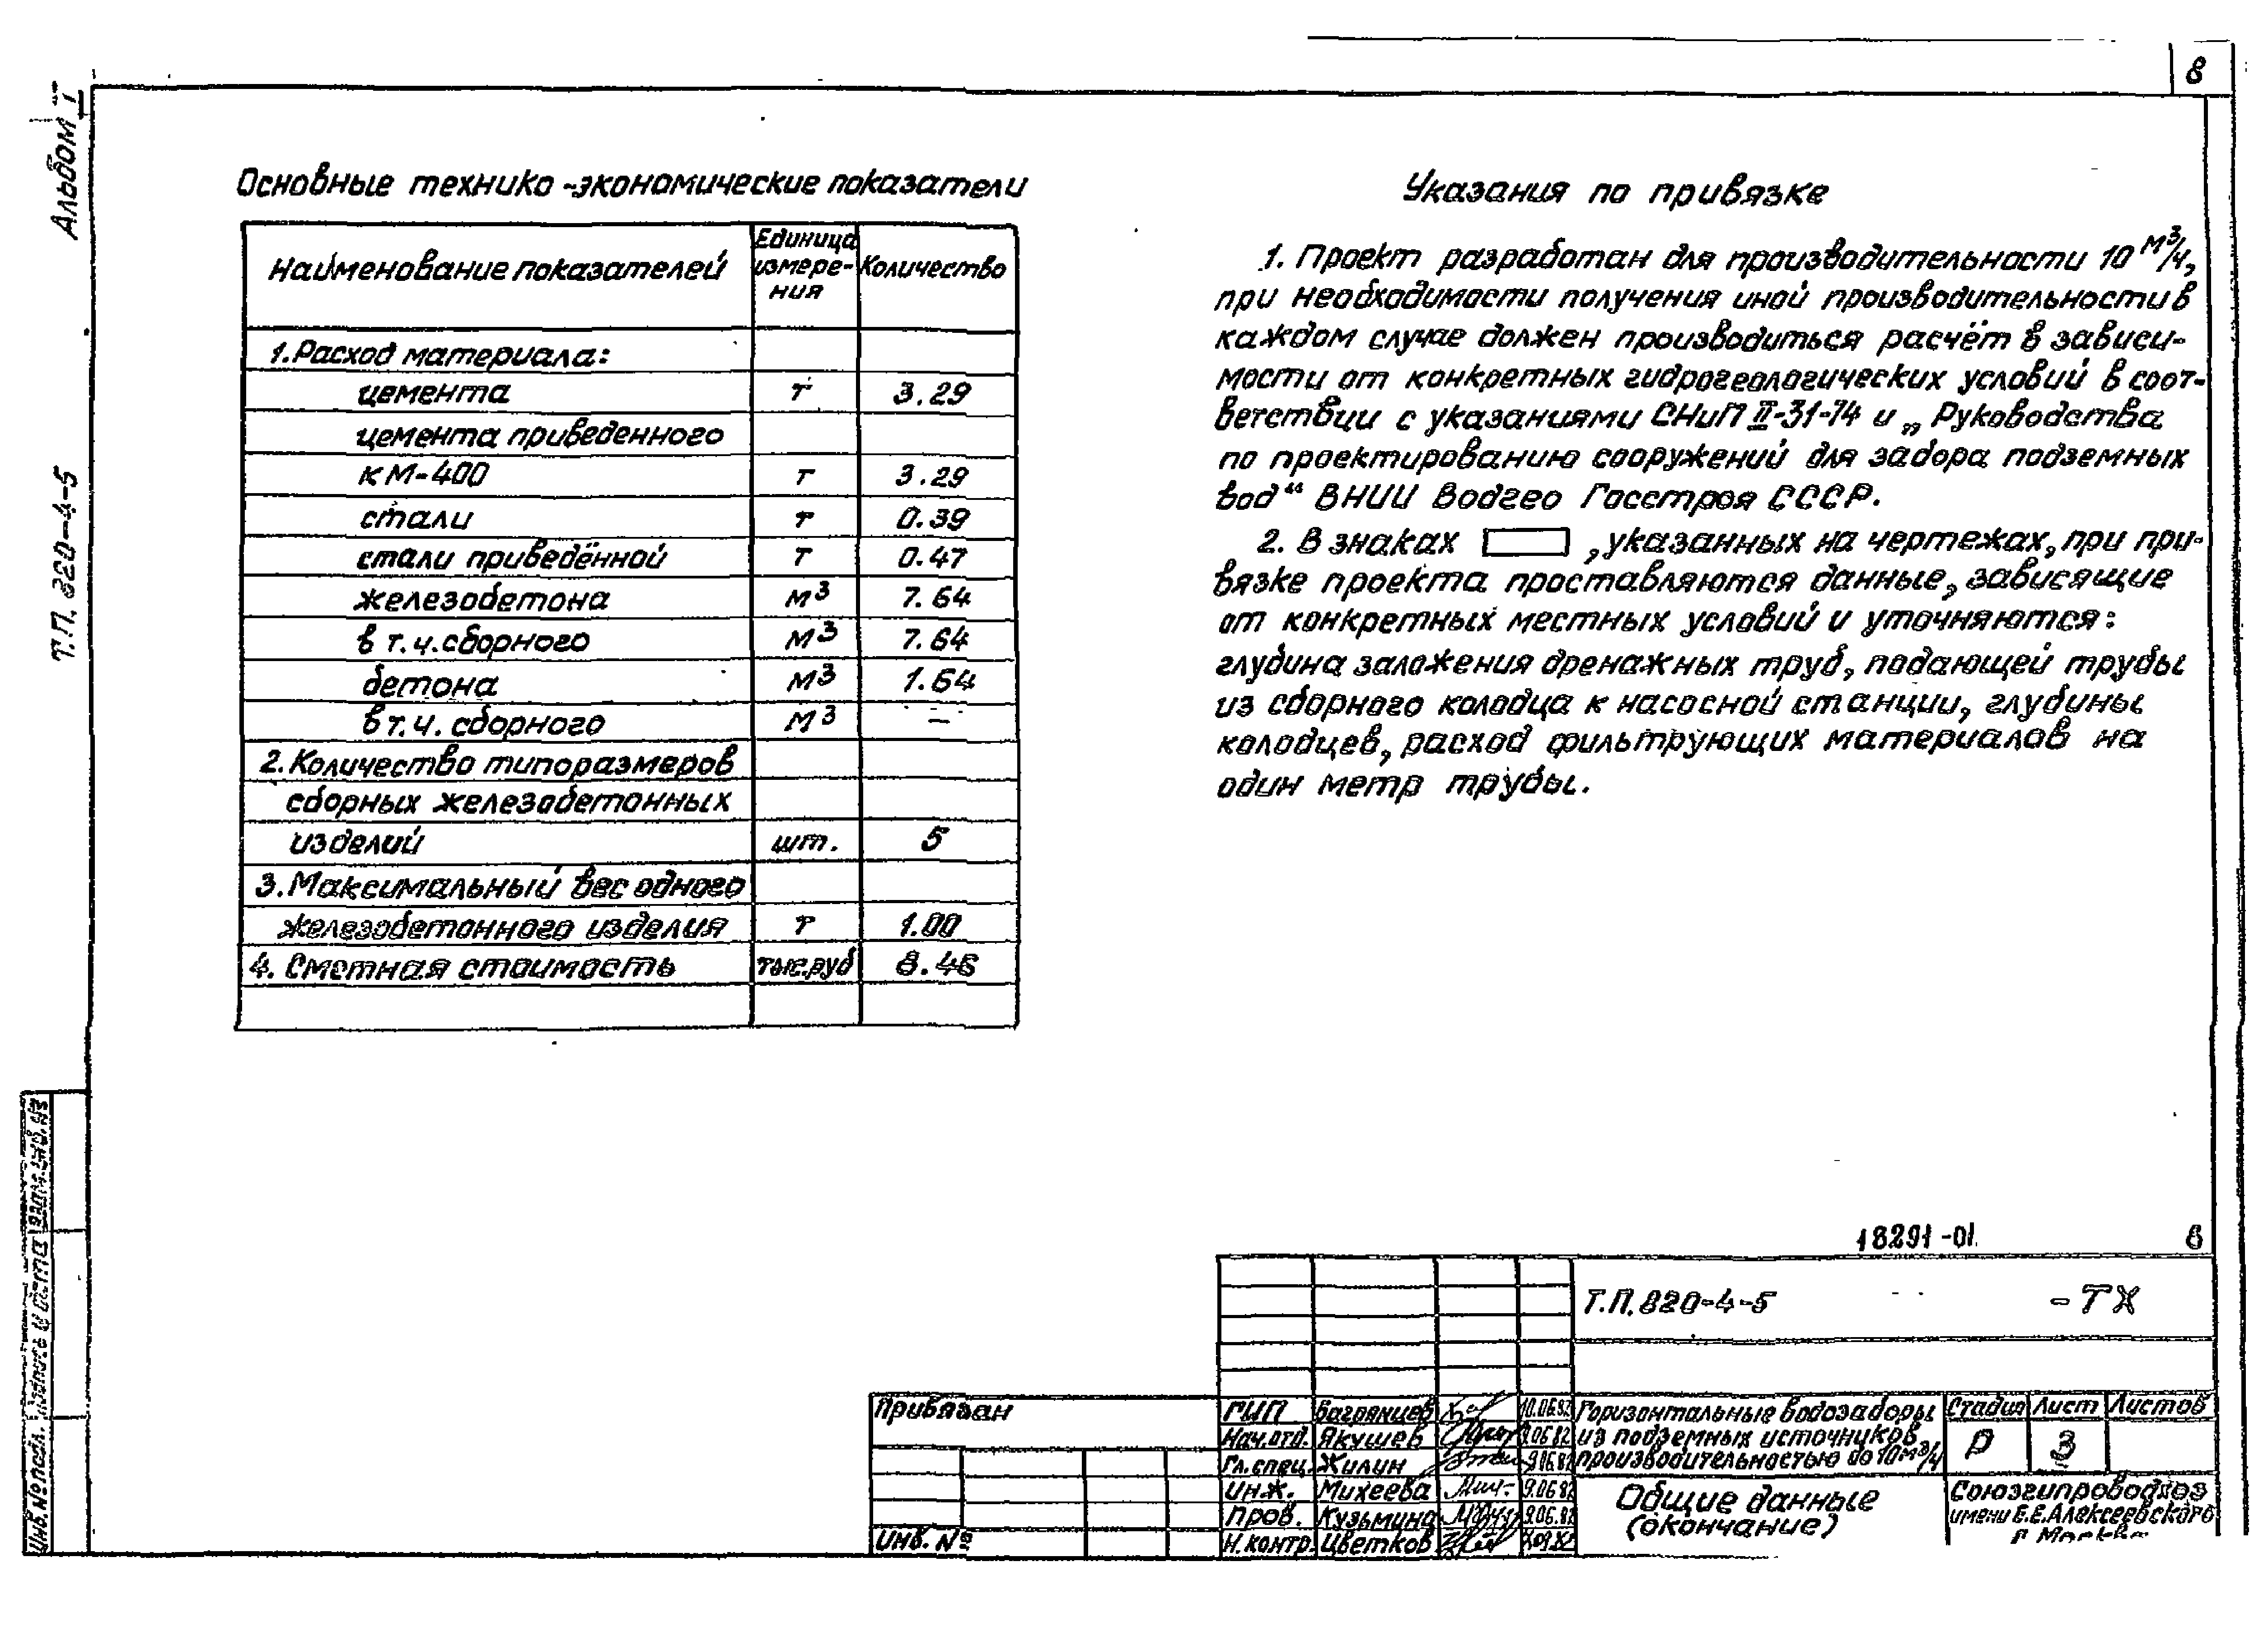 8
Альбом I
Т.П. 820-4-5
Основные технико-экономические показатели
Наименование показателей
Единица измерения
Количество
1. Расход материала:
цемента т 3.29
цемента приведенного
к М-400 т 3.29
стали т 0.39
стали приведённой т 0.47
железобетона м³ 7.64
в т.ч. сборного м³ 7.64
бетона м³ 1.64
в т.ч. сборного м³ –
2. Количество типоразмеров
сборных железобетонных
изделий шт. 5
3. Максимальный вес одного
железобетонного изделия т 1.00
4. Сметная стоимость тыс.руб 8.46
Указания по привязке
1. Проект разработан для производительности 10 м³/ч,
при необходимости получения иной производительности в
каждом случае должен производиться расчёт в зависи-
мости от конкретных гидрогеологических условий в соот-
ветствии с указаниями СНиП II-31-74 и „Руководства
по проектированию сооружений для забора подземных
вод“ ВНИИ Водгео Госстроя СССР.
2. В знаках , указанных на чертежах, при при-
вязке проекта проставляются данные, зависящие
от конкретных местных условий и уточняются:
глубина заложения дренажных труб, подающей трубы
из сборного колодца к насосной станции, глубины
колодцев, расход фильтрующих материалов на
один метр трубы.
Инв. № подл. Подпись и дата Взам. инв. №
18291-01
Т.П. 820-4-5 -ТХ
Привязан
Инв. №
ГИП Багрянцев 10.06.82
Нач.отд. Якушев 9.06.82
Гл.спец. Жилин 9.06.82
Инж. Михеева 9.06.82
Пров. Кузьмина 9.06.82
Н.контр. Цветков
Горизонтальные водозаборы
из подземных источников
производительностью до 10 м³/ч
Стадия Лист Листов
Р 3
Общие данные
(окончание)
Союзгипроводхоз
имени Е.Е.Алексеевского
г. Москва